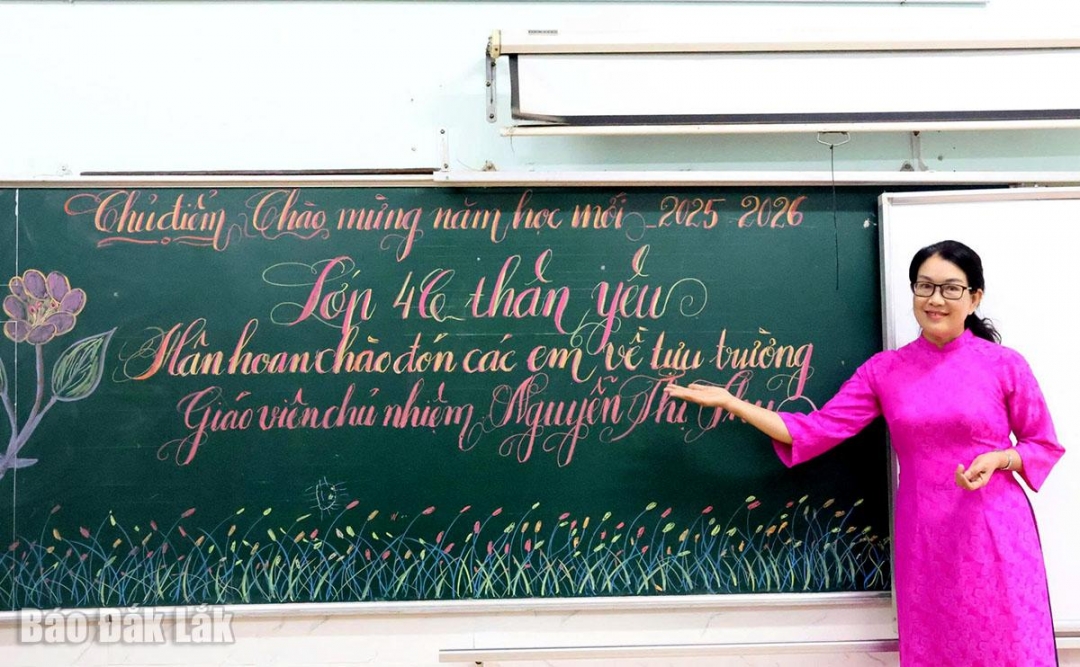 Chủ điểm Chào mừng năm học mới 2025-2026
Lớp 4C thân yêu
Hân hoan chào đón các em về tựu trường
Giáo viên chủ nhiệm Nguyễn Thị
Báo Đắk Lắk